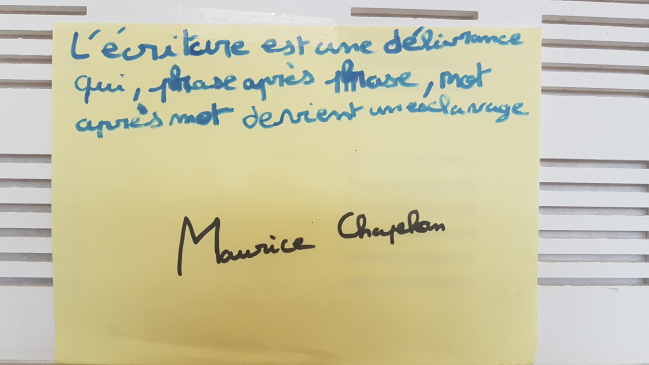 L'écriture est une délivrance
qui, phrase après phrase, mot
après mot devient un esclavage
Maurice Chapelan